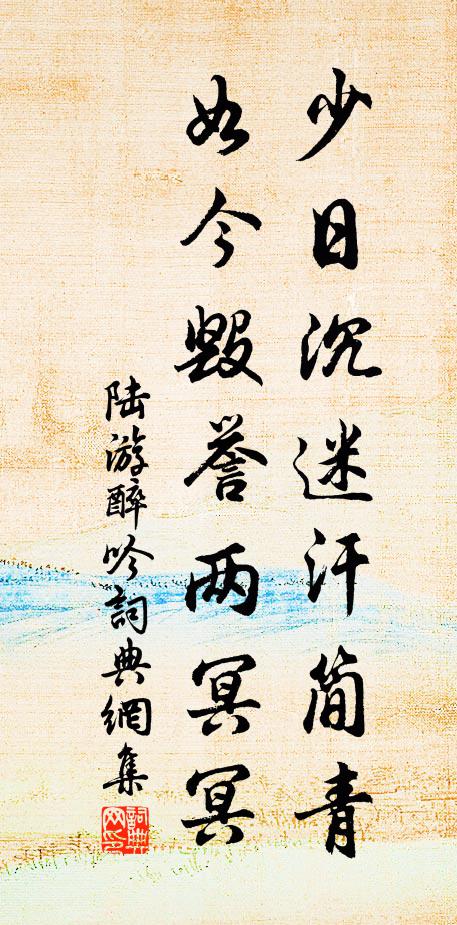 少日沉迷汗简青
如今毁誉两冥冥
陆游醉吟詞典網集
詞典网印